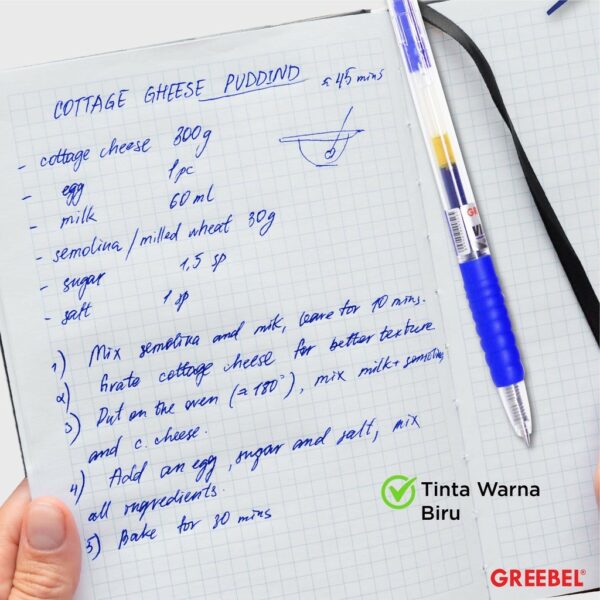 COTTAGE GHEESE PUDDIND ≈ 45 mins
- cottage cheese 300g
- egg 1 pc
- milk 60 ml
- semolina / milled wheat 30g
- sugar 1,5 sp
- salt 1 sp
1) Mix semolina and milk, leave for 10 mins.
2) Grate cottage cheese for better texture
3) Put on the oven (≈180°), mix milk + semolina
and c. cheese.
4) Add an egg, sugar and salt, mix
all ingredients.
5) Bake for 30 mins
GR
VI
Tinta Warna
Biru
GREEBEL®